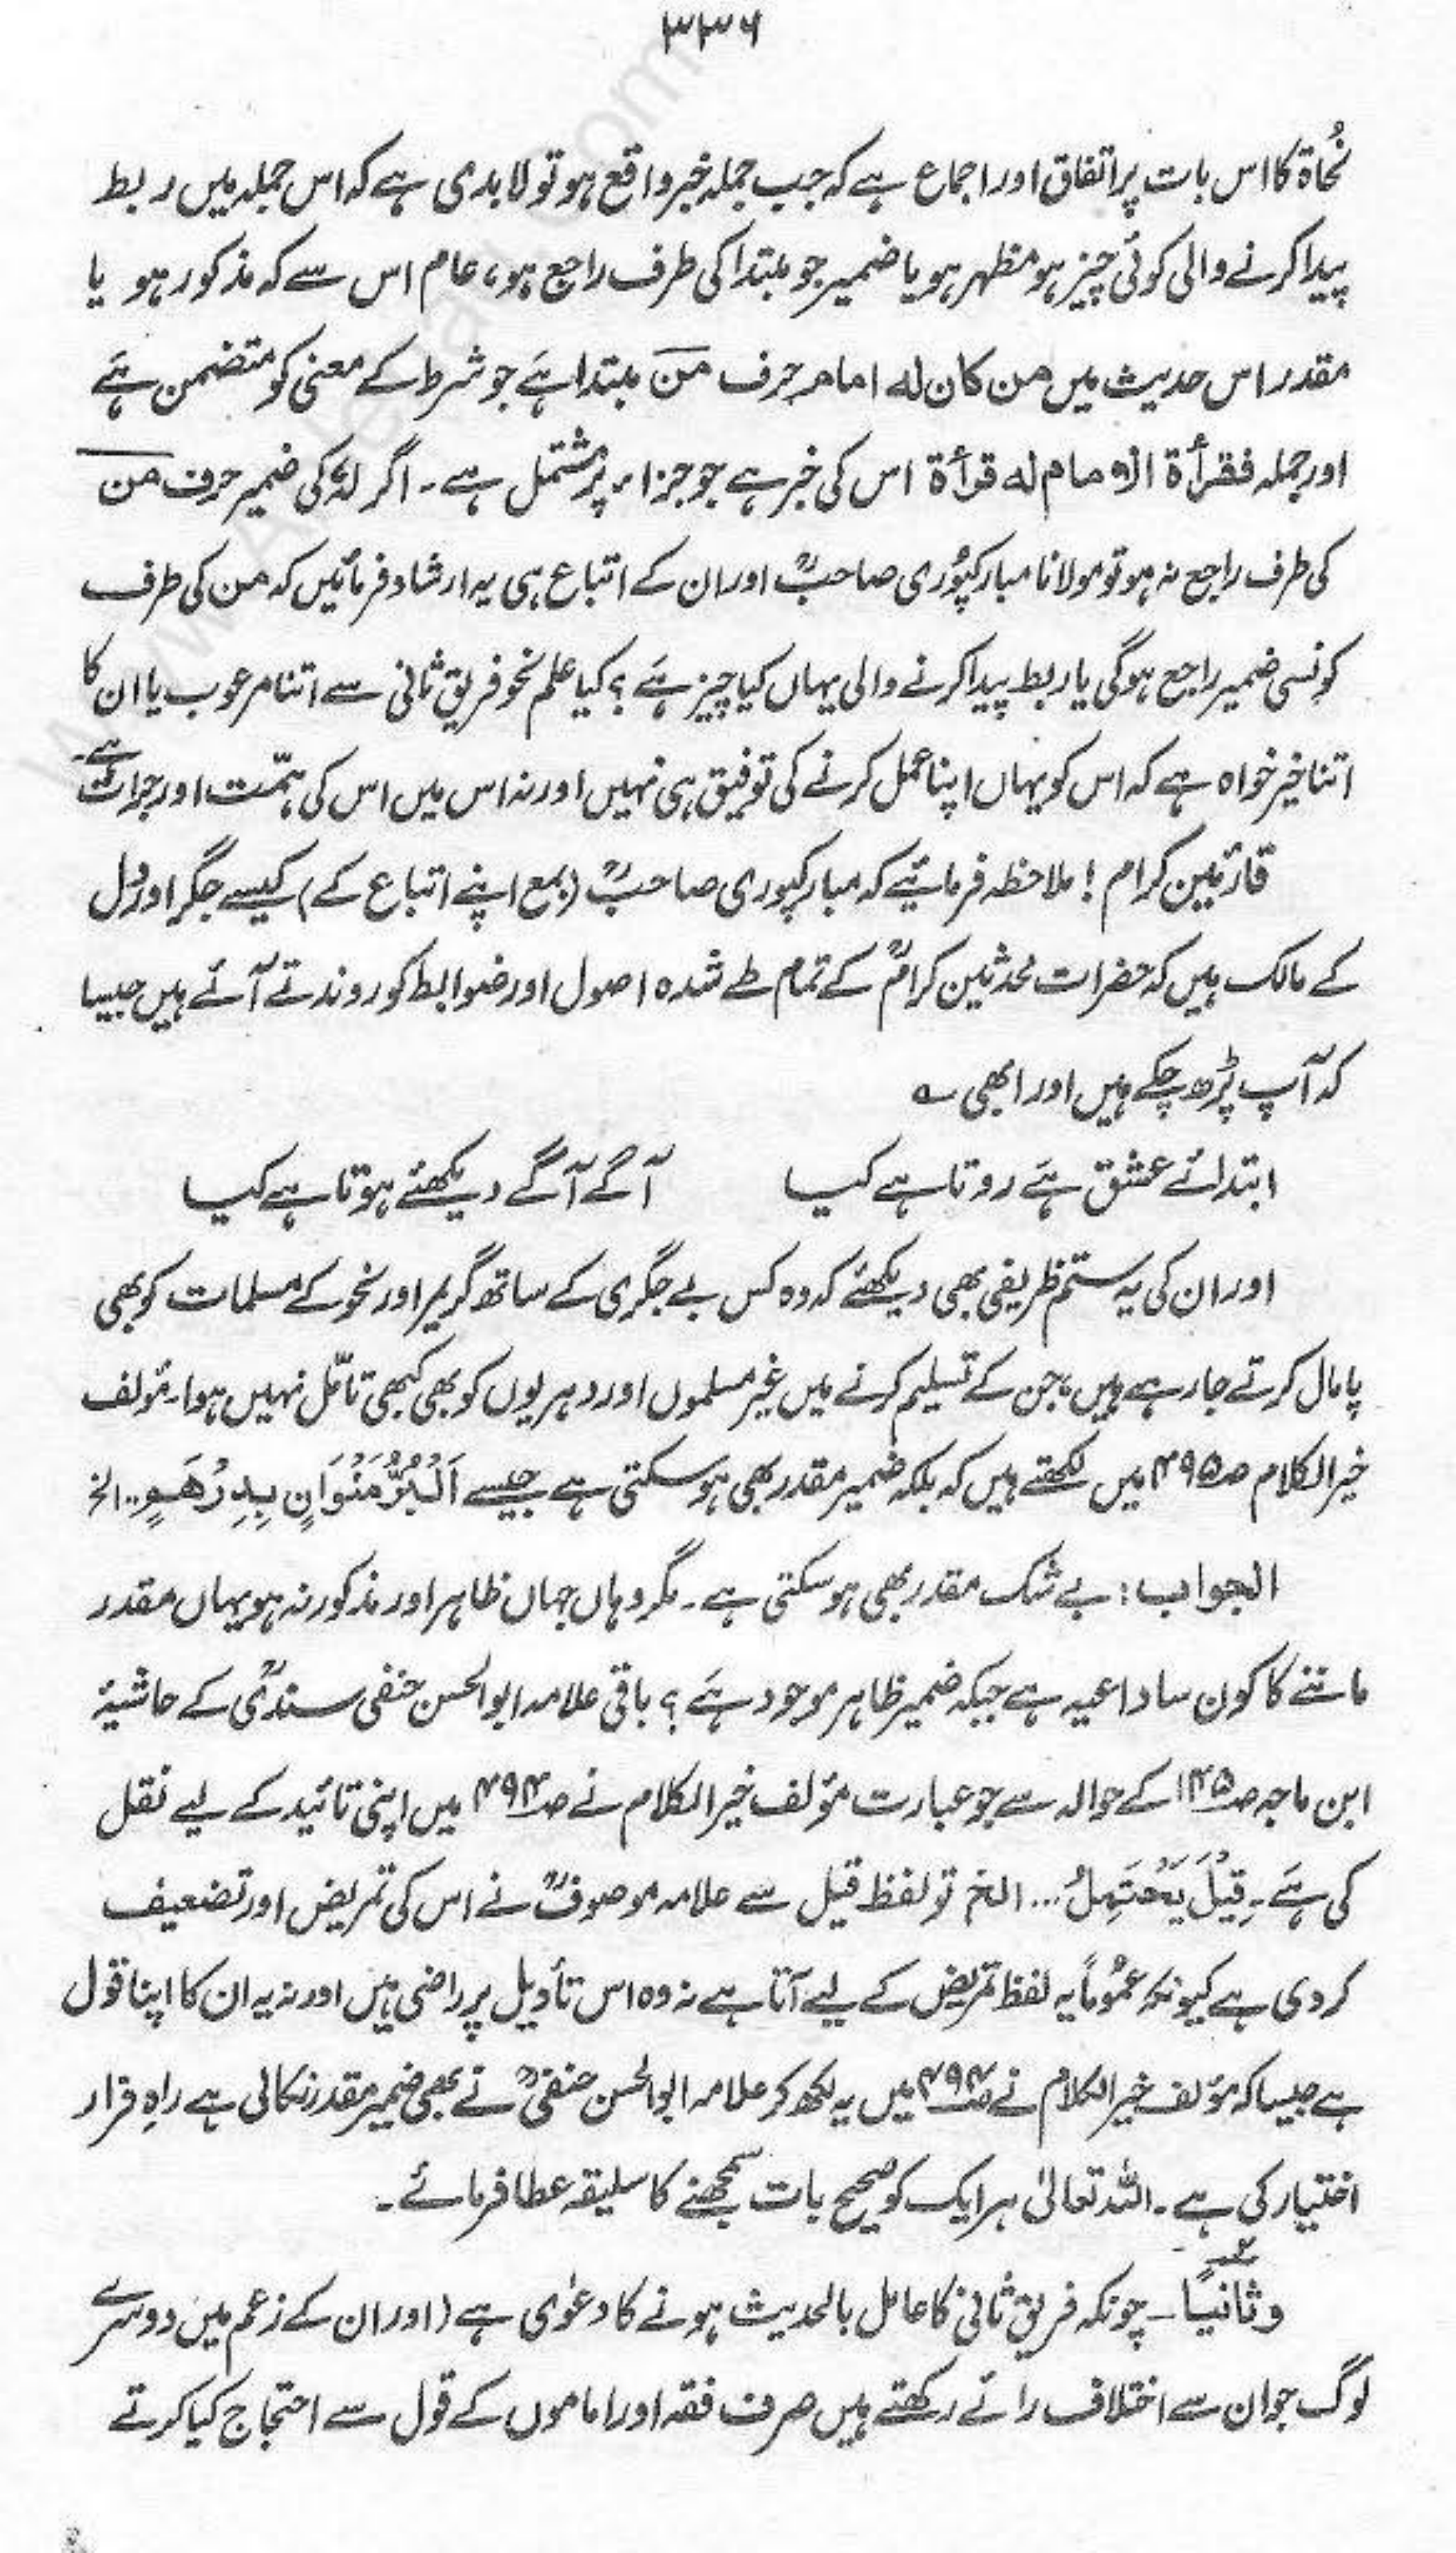 ۳۳۶
نُحاۃ کا اس بات پر اتفاق اور اجماع ہے کہ جب جملہ خبر واقع ہو تو لابدی ہے کہ اس جملہ میں ربط
پیدا کرنے والی کوئی چیز ہو مظہر ہو یا ضمیر جو مبتدا کی طرف راجع ہو، عام اس سے کہ مذکور ہو یا
مقدر اس حدیث میں من کان لہ امام حرف من مبتدا ہے جو شرط کے معنی کو متضمن ہے
اور جملہ فقرأۃ الامام لہ قرأۃ اس کی خبر ہے جو جزاء پر مشتمل ہے۔ اگر لہٗ کی ضمیر حرف من
کی طرف راجع نہ ہو تو مولانا مبارکپوری صاحبؒ اور ان کے اتباع ہی یہ ارشاد فرمائیں کہ من کی طرف
کونسی ضمیر راجع ہوگی یا ربط پیدا کرنے والی یہاں کیا چیز ہے؟ کیا علم نحو فریق ثانی سے اتنا مرعوب یا ان کا
اتنا خیر خواہ ہے کہ اس کو یہاں اپنا عمل کرنے کی توفیق ہی نہیں اور نہ اس میں اس کی ہمّت اور جرات ہے۔
قارئین کرام! ملاحظہ فرمائیے کہ مبارکپوری صاحبؒ (بمع اپنے اتباع کے) کیسے جگر اور دل
کے مالک ہیں کہ حضرات محدثین کرامؒ کے تمام طے شدہ اصول اور ضوابط کو روندتے آئے ہیں جیسا
کہ آپ پڑھ چکے ہیں اور ابھی ؎
ابتدائے عشق ہے روتا ہے کیا آگے آگے دیکھئے ہوتا ہے کیا
اور ان کی یہ ستم ظریفی بھی دیکھئے کہ وہ کس بے جگری کے ساتھ گریمر اور نحو کے مسلمات کو بھی
پامال کرتے جا رہے ہیں، جن کے تسلیم کرنے میں غیر مسلموں اور دہریوں کو بھی کبھی تامّل نہیں ہوا۔ مؤلف
خیر الکلام ص۴۹۵ میں لکھتے ہیں کہ بلکہ ضمیر مقدر بھی ہو سکتی ہے جیسے اَلْبُرُّ مَنْوَانِ بِدِرْهَمٍ .. الخ
الجواب: بے شک مقدر بھی ہو سکتی ہے۔ مگر وہاں جہاں ظاہر اور مذکور نہ ہو یہاں مقدر
ماننے کا کون سا داعیہ ہے جبکہ ضمیر ظاہر موجود ہے؟ باقی علامہ ابوالحسن حنفی سندھیؒ کے حاشیۂ
ابن ماجہ ص۱۴۵ کے حوالہ سے جو عبارت مؤلف خیر الکلام نے ص۴۹۴ میں اپنی تائید کے لیے نقل
کی ہے۔ قِیْلَ یَحْتَمِلُ... الخ تو لفظ قیل سے علامہ موصوفؒ نے اس کی تمریض اور تضعیف
کر دی ہے کیونکہ عموماً یہ لفظ تمریض کے لیے آتا ہے نہ وہ اس تأویل پر راضی ہیں اور نہ یہ ان کا اپنا قول
ہے جیسا کہ مؤلف خیر الکلام نے ص۴۹۴ میں یہ لکھ کر علامہ ابوالحسن حنفیؒ نے بھی ضمیر مقدر نکالی ہے راہِ فرار
اختیار کی ہے۔ اللہ تعالیٰ ہر ایک کو صحیح بات سمجھنے کا سلیقہ عطا فرمائے۔
وثانیاً۔ چونکہ فریق ثانی کا عامل بالحدیث ہونے کا دعوٰی ہے (اور ان کے زعم میں دوسرے
لوگ جو ان سے اختلاف رائے رکھتے ہیں صرف فقہ اور اماموں کے قول سے احتجاج کیا کرتے